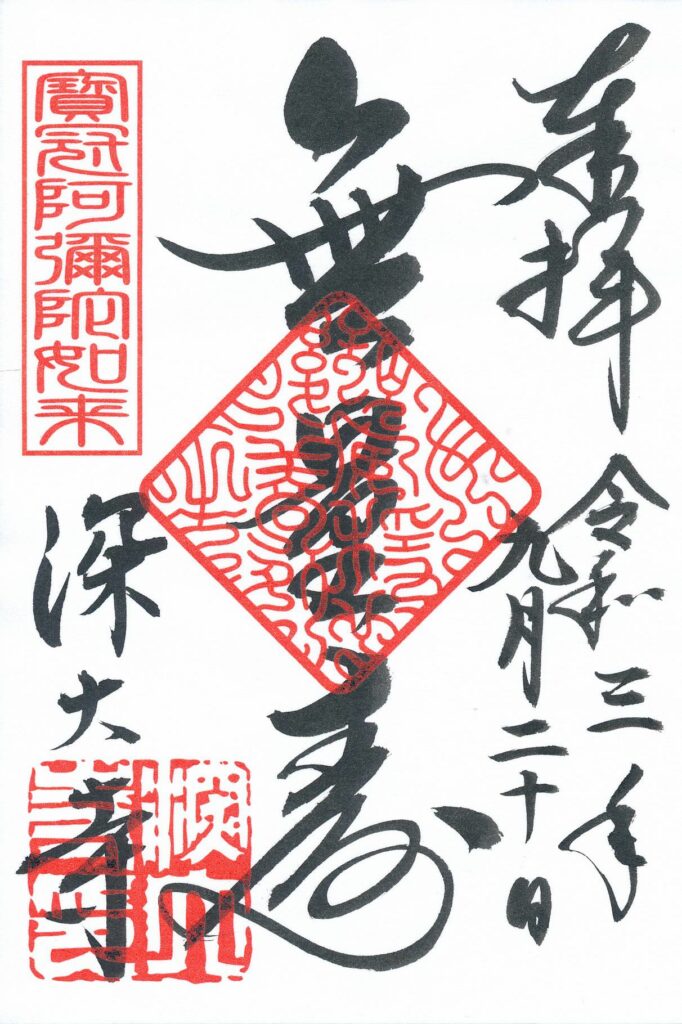 奉拝
令和三年
九月二十日
無量寿
寶冠阿彌陀如来
深大寺